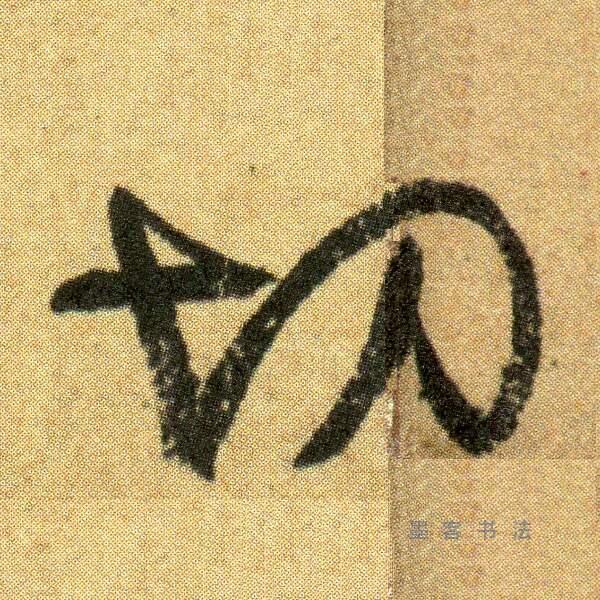 切
墨客书法